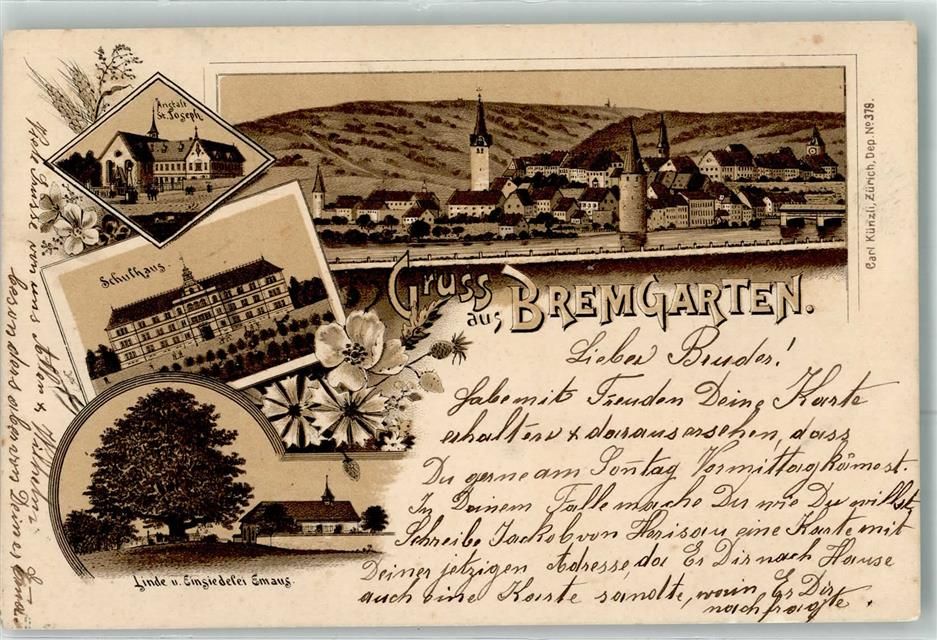 Anstalt
St. Joseph
Schulhaus
Linde u. Einsiedelei Emaus.
Gruss
aus BREMGARTEN.
Carl Künzli, Zürich, Dep. No 378.
Lieber Bruder!
Habe mit Freuden Deine Karte
erhalten & daraus ersehen, dass
Du gerne am Sonntag Vormittag kämest.
In Deinem Falle mache Du wie Du willst,
Schreibe Jackob von Herisau eine Karte mit
Deiner jetzigen Adresse, da Er Dir nach Hause
auch eine Karte sandte, worin Er Dir
nachfragte.
Viele Grüsse von uns Allen &
besonders aber von Deiner